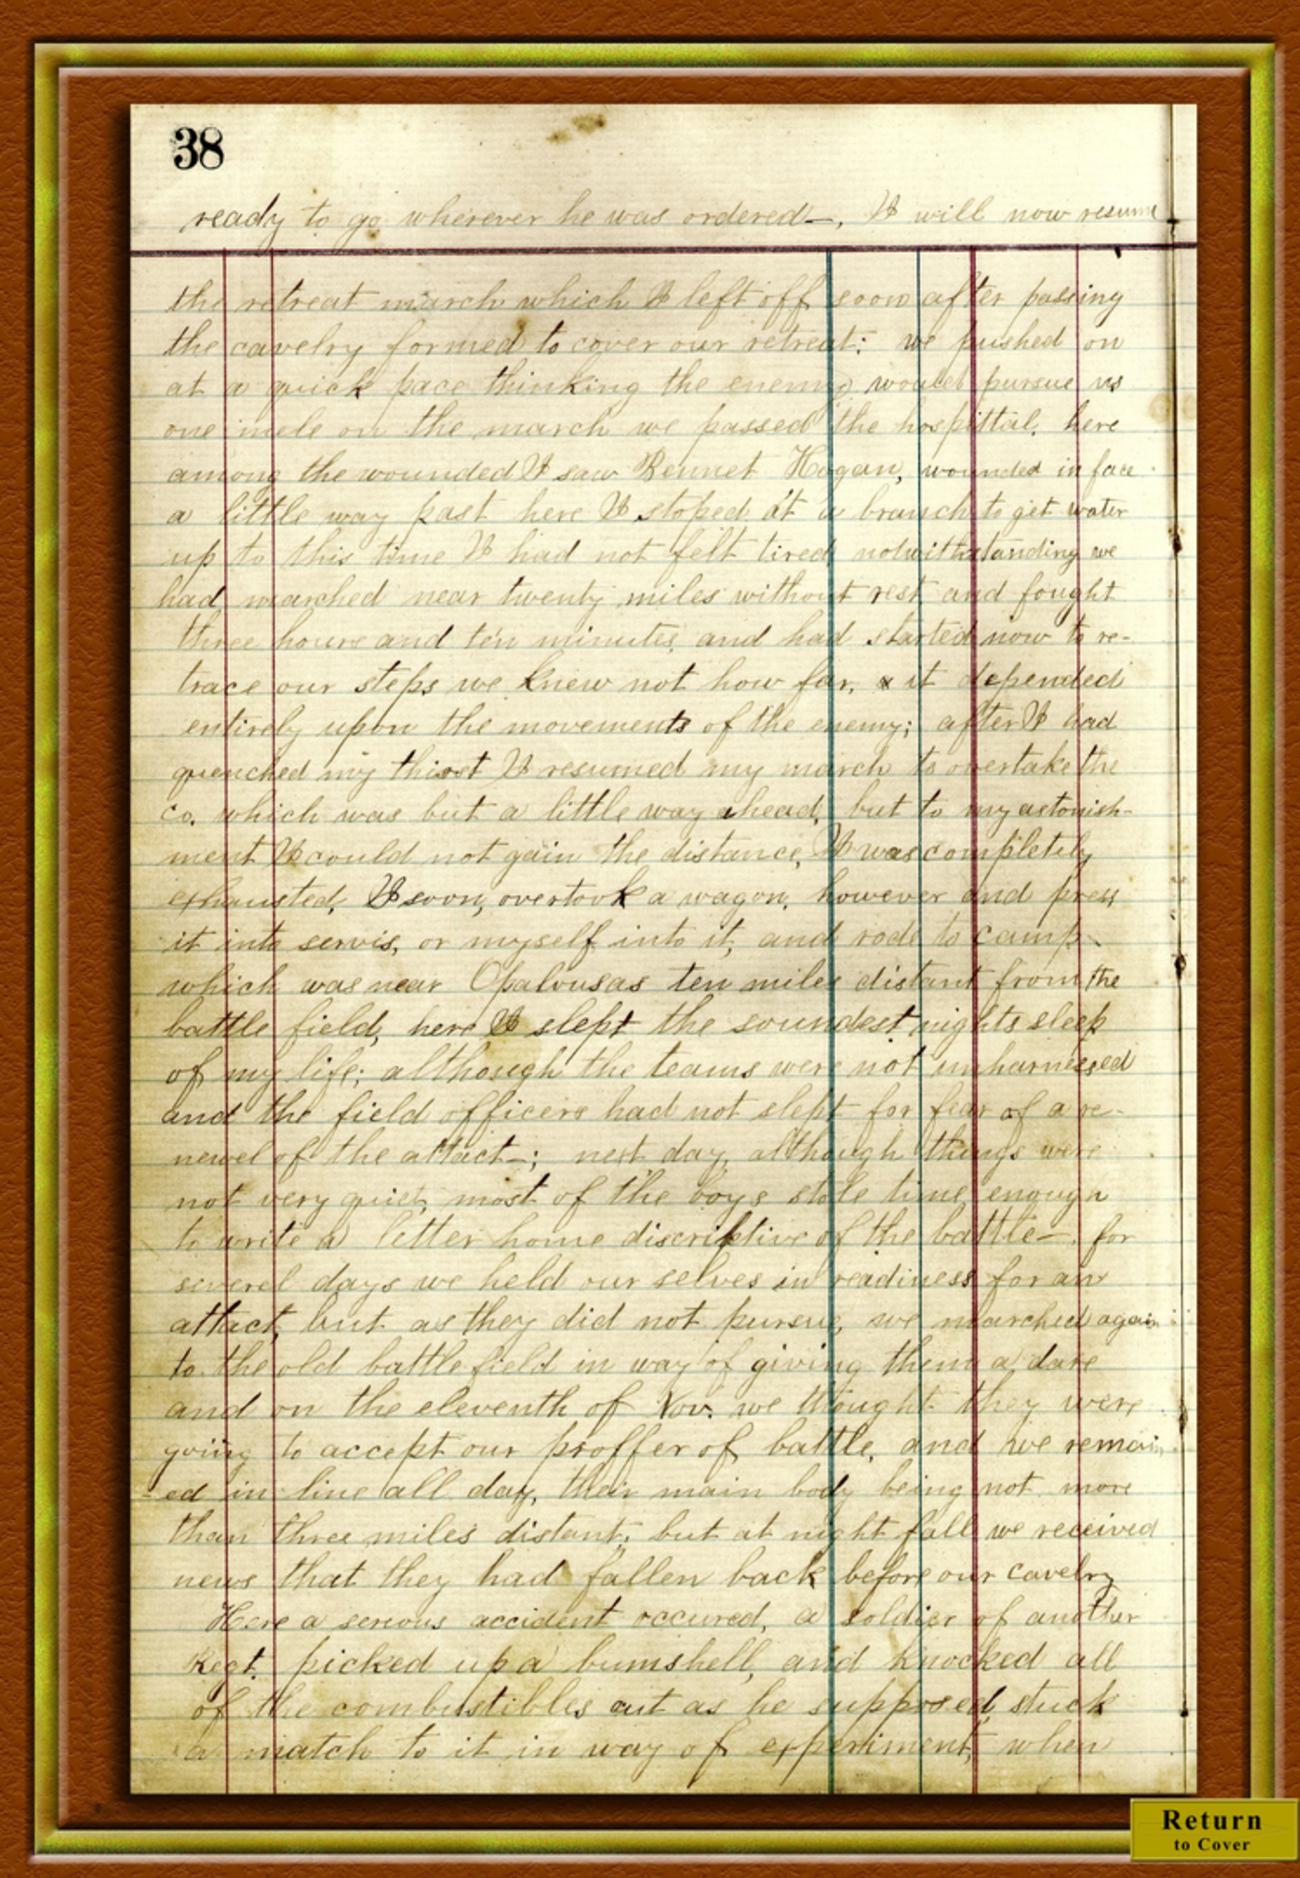 38
ready to go wherever he was ordered—. I will now resume
the retreat march which I left off soon after passing
the cavelry formed to cover our retreat: we pushed on
at a quick pace thinking the enemy would pursue us
one mele on the march we passed the hospittal, here
among the wounded I saw Bennet Hogan, wounded in face
a little way past here I stoped at a branch to get water
up to this time I had not felt tired notwithstanding we
had marched near twenty miles without rest and fought
three hours and ten minutes, and had started now to re-
trace our steps we knew not how far, it depended
entirely upon the movements of the enemy; after I had
quenched my thirst I resumed my march to overtake the
co. which was but a little way ahead, but to my astonish-
ment I could not gain the distance, I was completely
exhausted, I soon, overtook a wagon, however and press
it into servis, or myself into it, and rode to camp
which was near Opalousas ten miles distant from the
battle field, here I slept the soundest nights sleep
of my life; although the teams were not unharnessed
and the field officers had not slept for fear of a re-
newel of the attact—; next day, although things were
not very quiet, most of the boys stole time enough
to write a letter home discriptive of the battle—. for
severel days we held our selves in readiness for an
attact, but as they did not pursue, we marched again
to the old battlefield in way of giving them a dare
and on the eleventh of Nov. we thought they were
going to accept our proffer of battle, and we remain
-ed in line all day, their main body being not more
than three miles distant, but at night fall we received
news that they had fallen back before our cavelry
Here a serious accident occured, a soldier of another
Regt. picked up a bumshell, and knocked all
of the combustibles out as he supposed, stuck
a match to it in way of experiment, when
Return
to Cover